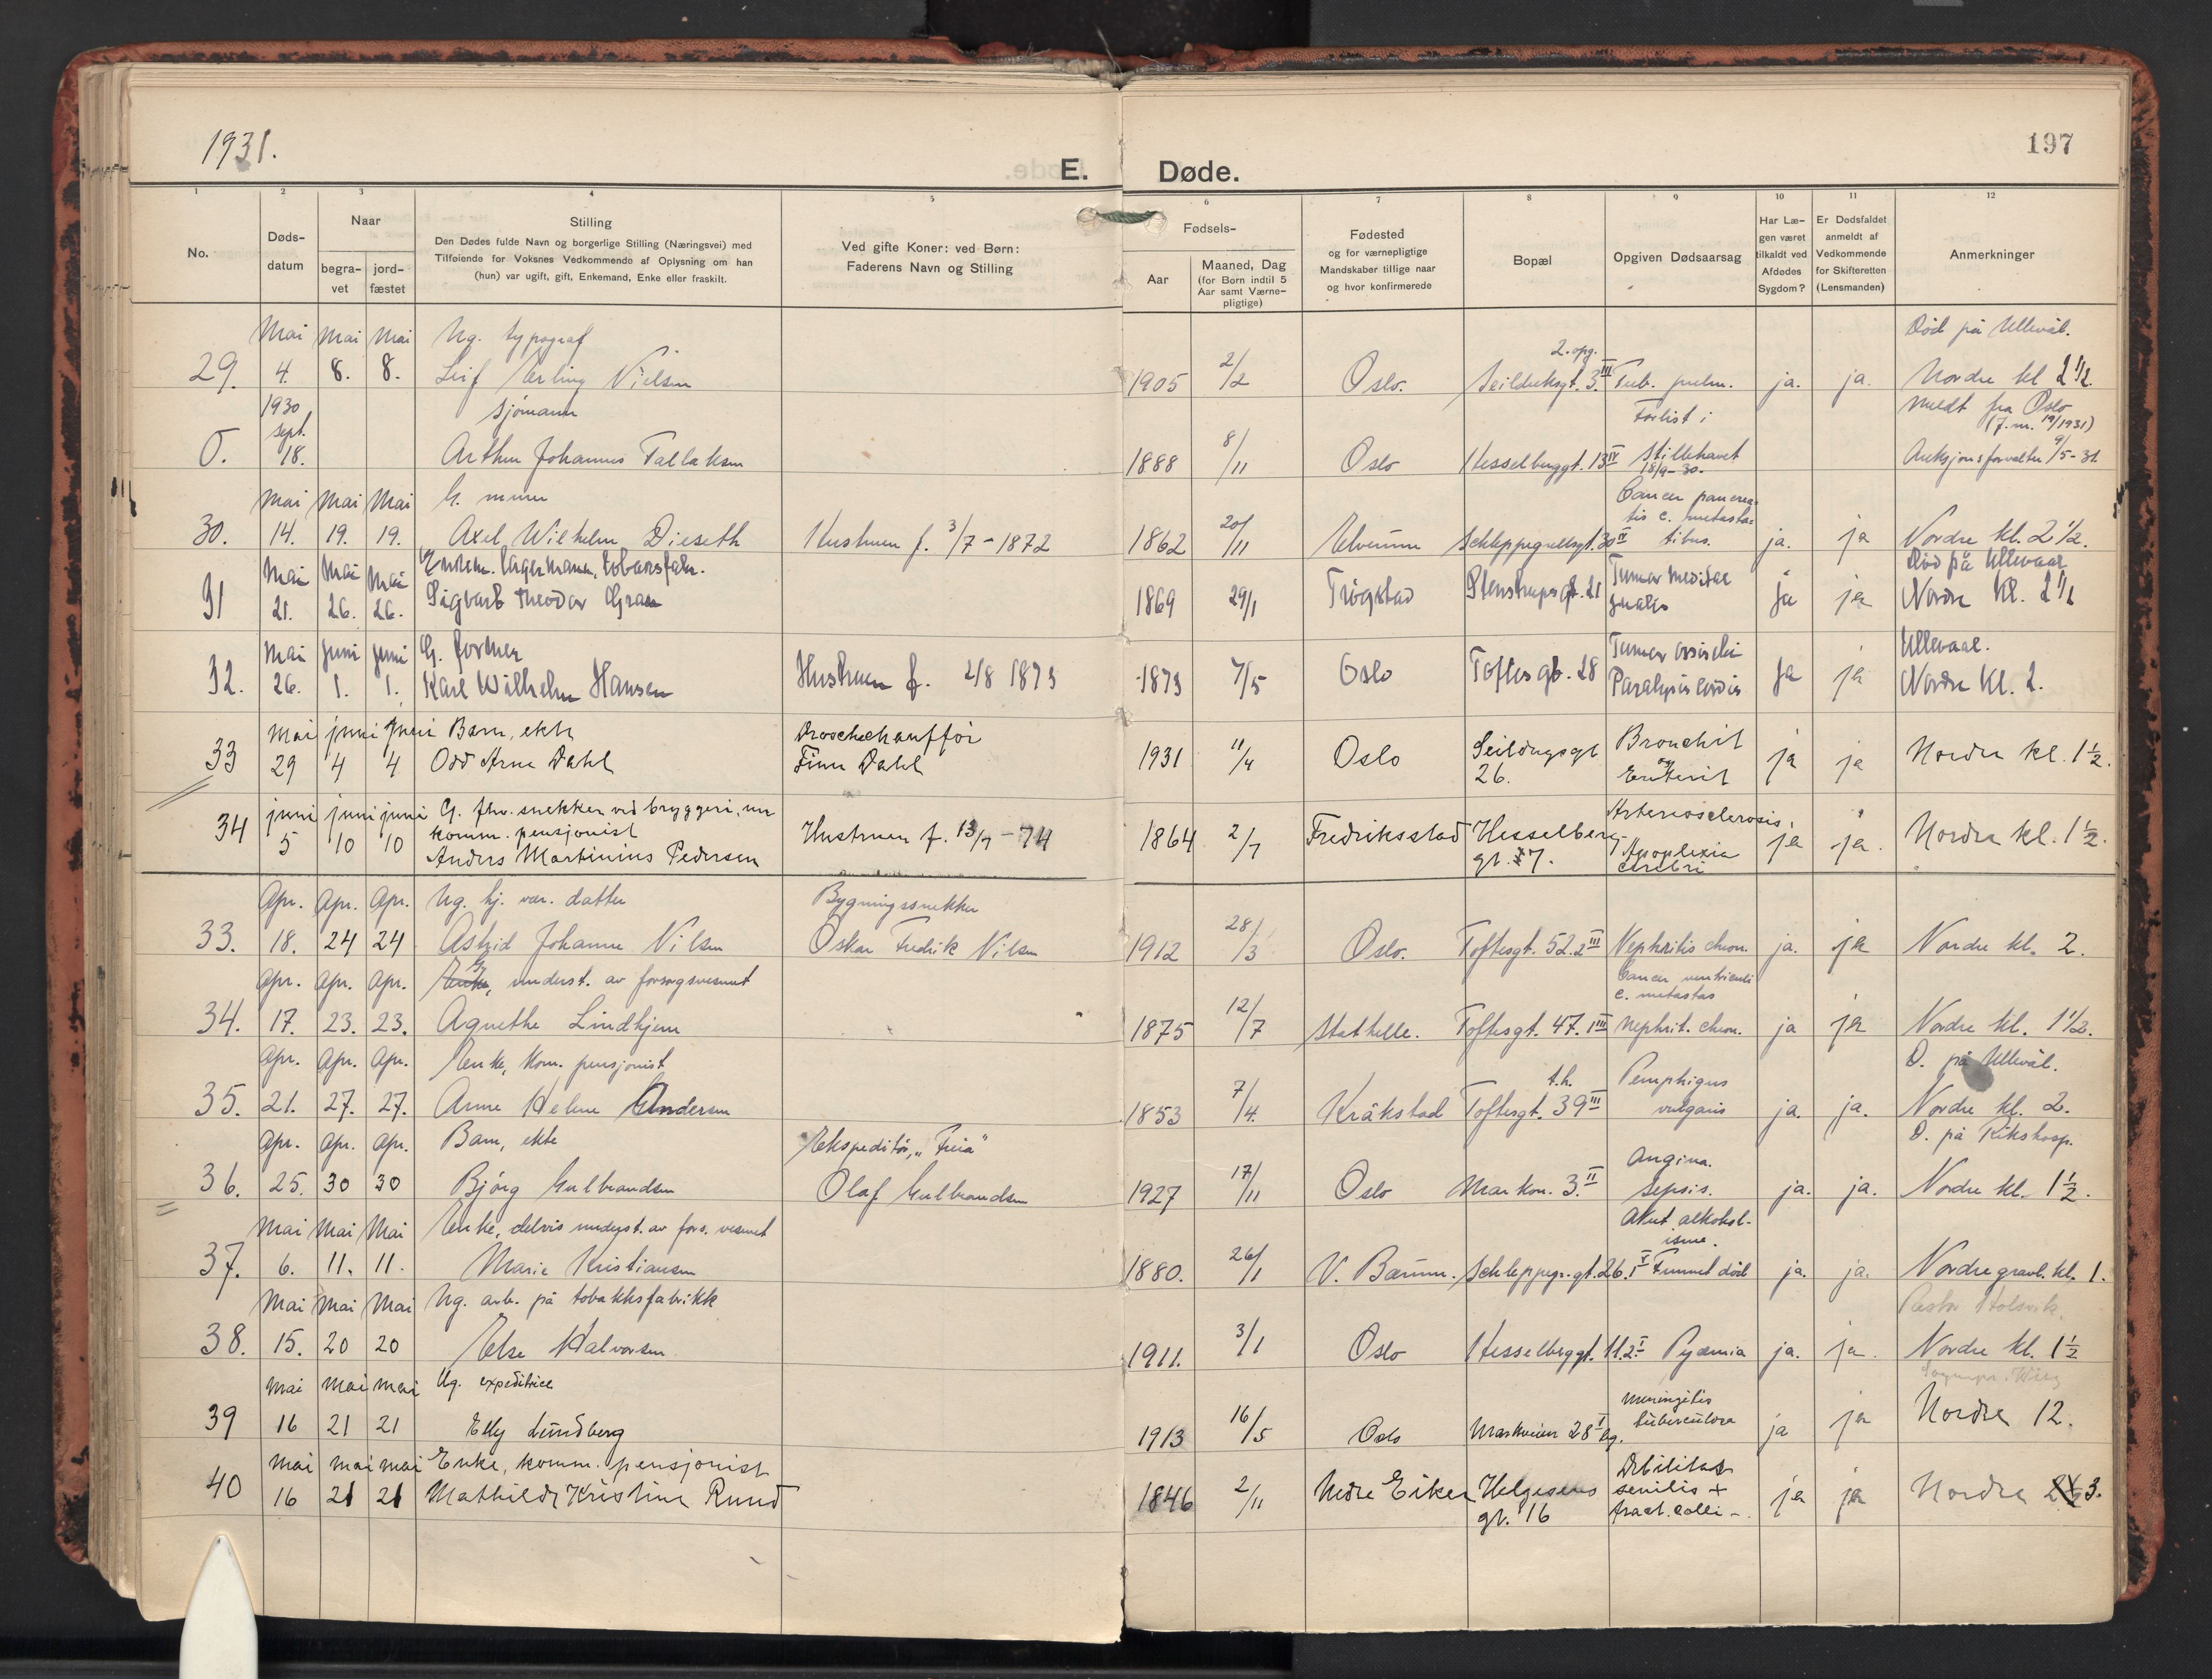 1931.
197
E. Døde.
1 2 3 4 5 6 7 8 9 10 11 12
No.
Døds-
datum
Naar
begra-
vet
jord-
fæstet
Stilling
Den Dødes fulde Navn og borgerlige Stilling (Næringsvei) med
Tilføiende for Voksnes Vedkommende af Oplysning om han
(hun) var ugift, gift, Enkemand, Enke eller fraskilt.
Ved gifte Koner: ved Børn:
Faderens Navn og Stilling
Fødsels-
Aar
Maaned, Dag
(for Børn indtil 5
Aar samt Værne-
pligtige)
Fødested
og for værnepligtige
Mandskaber tillige naar
og hvor konfirmerede
Bopæl
Opgiven Dødsaarsag
Har Læ-
gen været
tilkaldt ved
Afdødes
Sygdom?
Er Dødsfaldet
anmeldt af
Vedkommende
for Skifteretten
(Lensmanden)
Anmerkninger
Mai Mai Mai Ug. typograf 2. opg. Død på Ullevål.
29. 4. 8. 8. Leif Erling Nielsen 1905 2/2 Oslo. Seilduksgt. 3 III Tub. pulm. ja. ja. Nordre kl 2 1/2
1930 sjømann Forlist i Meldt fra Oslo
sept. (J.nr. 19/1931)
O. 18. Arthur Johannes Tallaksen 1888 8/11 Oslo Hesselberggt. 13 IV Stillehavet Auksjonsforvalter 9/5-31.
18/9-30.
Mai Mai Mai G. murer Cancer pancrea-
tis c. metasta-
30. 14. 19. 19. Axel Wilhelm Dieseth Hustruen f. 3/7-1872 1862 20/11 Elverum Schleppegrellsgt. 30 II tibus. ja. ja Nordre kl. 2 1/2.
Mai Mai Mai Enkem. lagermann, tobaksfabr. Død på Ullevaal
31 21. 26. 26. Sigvart Theodor Gran 1869 29/1 Trøgstad Stenstrupsgt. 21 Tumor ja ja Nordre Kl. 2 1/2
Mai juni juni G. former Ullevaal.
32. 26. 1. 1. Karl Wilhelm Hansen Hustruen f. 2/8 1873 1873 7/5 Oslo Toftesgt. 28 Tumor Paralysis cordis ja ja Nordre Kl. 2.
Mai juni juni Barn, ekte Droschechauffør
33 29 4 4 Odd Arne Dahl Finn Dahl 1931 11/4 Oslo Seildugsgt 26. Bronchit og Enterit ja ja Nordre kl. 1 1/2.
juni juni juni G. fhv. snekker ved bryggeri, nu
komm. pensjonist Arteriosclerosis,
34 5 10 10 Anders Martinius Pedersen Hustruen f. 13/7-74 1864 2/7 Fredriksstad Hesselberg-
gt. 7. Apoplexia cerebri ja ja. Nordre kl. 1 1/2.
Apr. Apr. Apr. Ug. hj. vær. datter Bygningssnekker
33. 18. 24 24 Astrid Johanne Nilsen Oskar Fredrik Nilsen 1912 28/3 Oslo. Toftesgt. 52.2 III Nephritis chron. ja. ja Nordre kl. 2.
Apr. Apr. Apr. Enke, G underst. av forsorgsvesenet Cancer ventriculi
c. metastas
34. 17. 23. 23. Agnethe Lindhjem 1875 12/7 Stathelle. Toftesgt. 47.1 III Nephrit. chron. ja ja Nordre kl. 1 1/2.
Apr. Apr. Apr. Enke, kom. pensjonist t.h. Pemphigus D. på Ullevål.
35. 21. 27. 27. Anne Helene Andersen 1853 7/4. Kråkstad Toftesgt. 39 III vulgaris ja. ja. Nordre kl. 2.
Apr. Apr. Apr. Barn, ekte Ekspeditør, „Freia" Angina. D. på Rikshosp.
36. 25. 30 30 Bjørg Gulbrandsen Olaf Gulbrandsen 1927 17/11 Oslo Markvn. 3. II Sepsis. ja. ja. Nordre kl. 1 1/2.
Mai Mai Mai Enke, delvis underst. av fors. vesenet Akut alkohol-
isme.
37. 6. 11. 11. Marie Kristiansen 1880. 26/1 V. Bærum. Schleppegr.gt. 26.1 V Funnet død ja. ja. Nordre gravl. kl. 1.
Mai Mai Mai Ug. arb. på tobakksfabrikk Pastor Holsvik.
38. 15. 20 20 Else Halvorsen 1911. 3/1 Oslo Hesselberggt. 11.2 I Pyæmia ja. ja. Nordre kl. 1 1/2
Mai Mai Mai Ug. expeditrice Meningitis
39 16 21 21 Elly Lundberg 1913 16/5 Oslo Markveien 28 I bg. tuberculosa ja ja Nordre 12.
Mai mai mai Enke, komm. pensjonist Debilitas
40 16 21 21 Mathilde Kristine Ruud 1846 2/11 Nedre Eiker Helgesens senilis + ja ja Nordre 3.
gt. 16 fract. colli